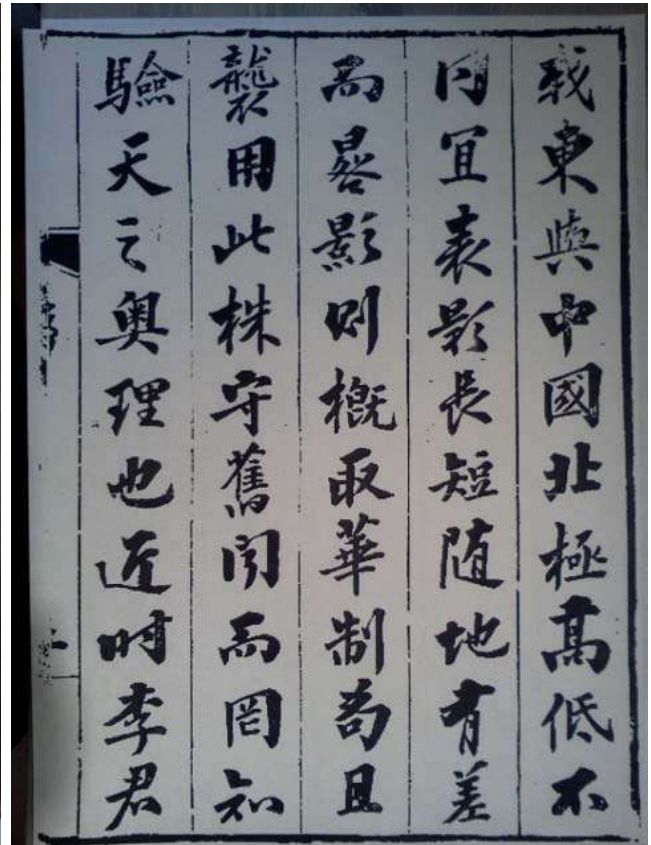 我東與中國北極高低不
同宜表影長短隨地有差
而晷影則槪取華制苟且
襲用此株守舊聞而罔知
驗天之奧理也近時李君